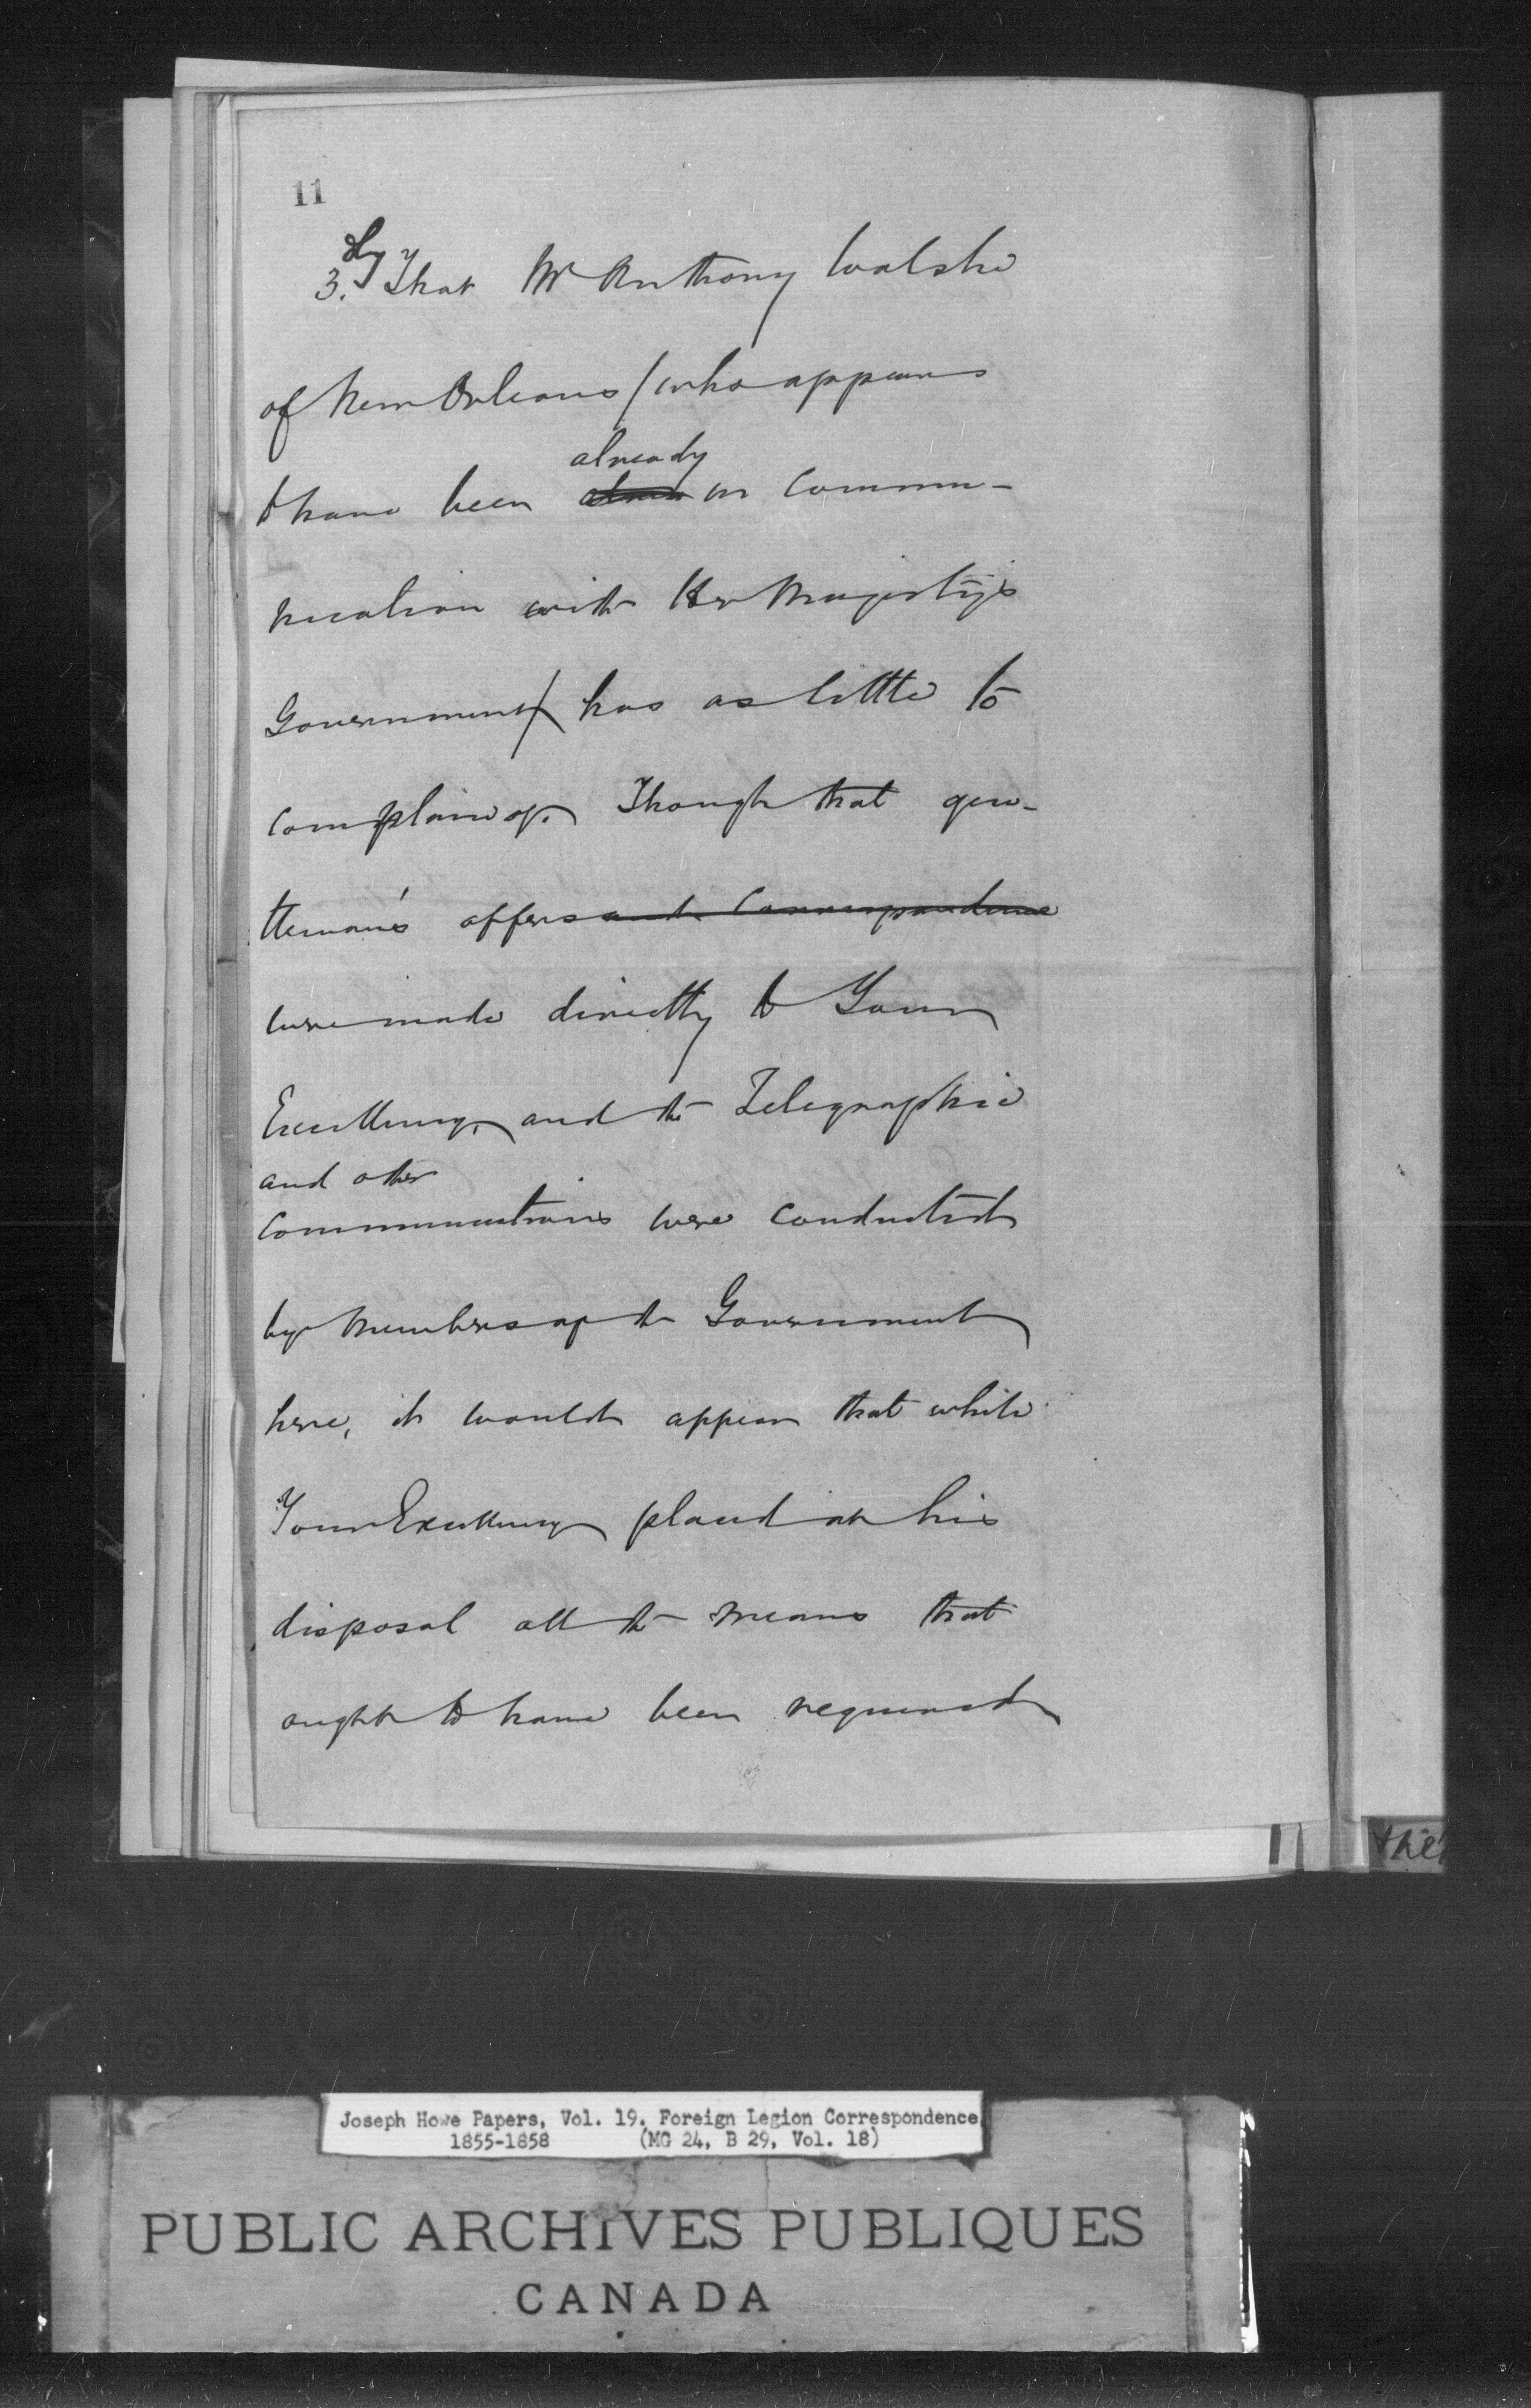 11
3.dly That Mr Anthony Walshe
of New Orleans (who appears
already
to have been in commu-
nication with Her Majesty's
Government) has as little to
complain of. Though that gen-
tleman's offers and Correspondence
were made directly to Your
Excellency, and the Telegraphic
and other
communications were conducted
by Members of the Government
here, it would appear that while
Your Excellency placed at his
disposal all the means that
ought to have been required
the
Joseph Howe Papers, Vol. 19. Foreign Legion Correspondence,
1855-1858 (MG 24, B 29, Vol. 18)
PUBLIC ARCHIVES PUBLIQUES
CANADA